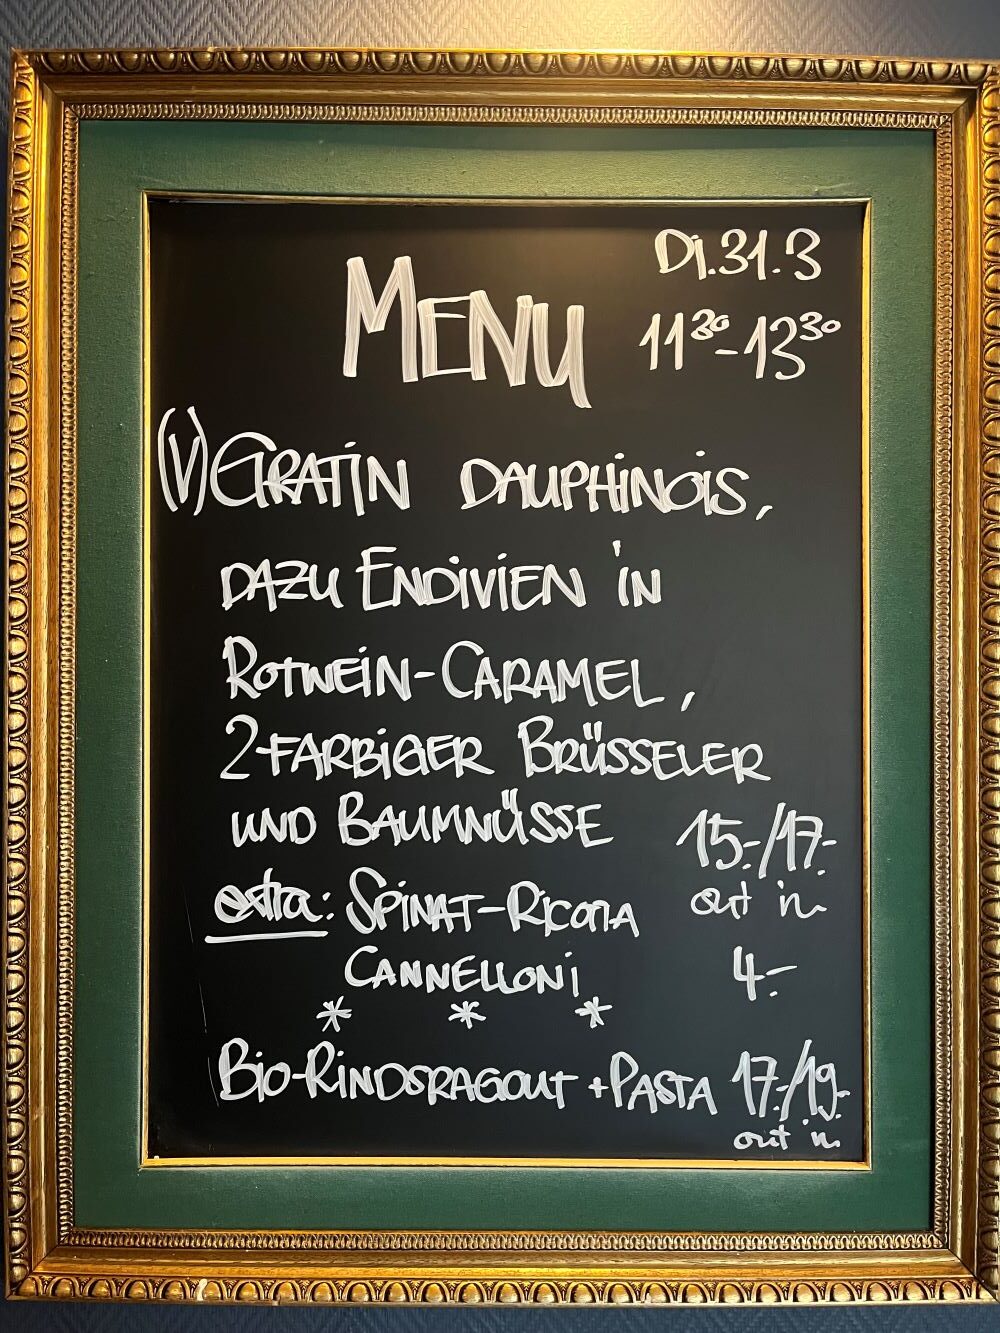 Di. 31.3
MENU
11³⁰-13³⁰
(V) GRATIN DAUPHINOIS,
DAZU ENDIVIEN IN
ROTWEIN-CARAMEL,
2-FARBIGER BRÜSSELER
UND BAUMNÜSSE 15.-/17.-
out in
extra: SPINAT-RICOTTA
CANNELLONI 4.-
* * *
BIO-RINDSRAGOUT + PASTA 17.-/19.-
out in